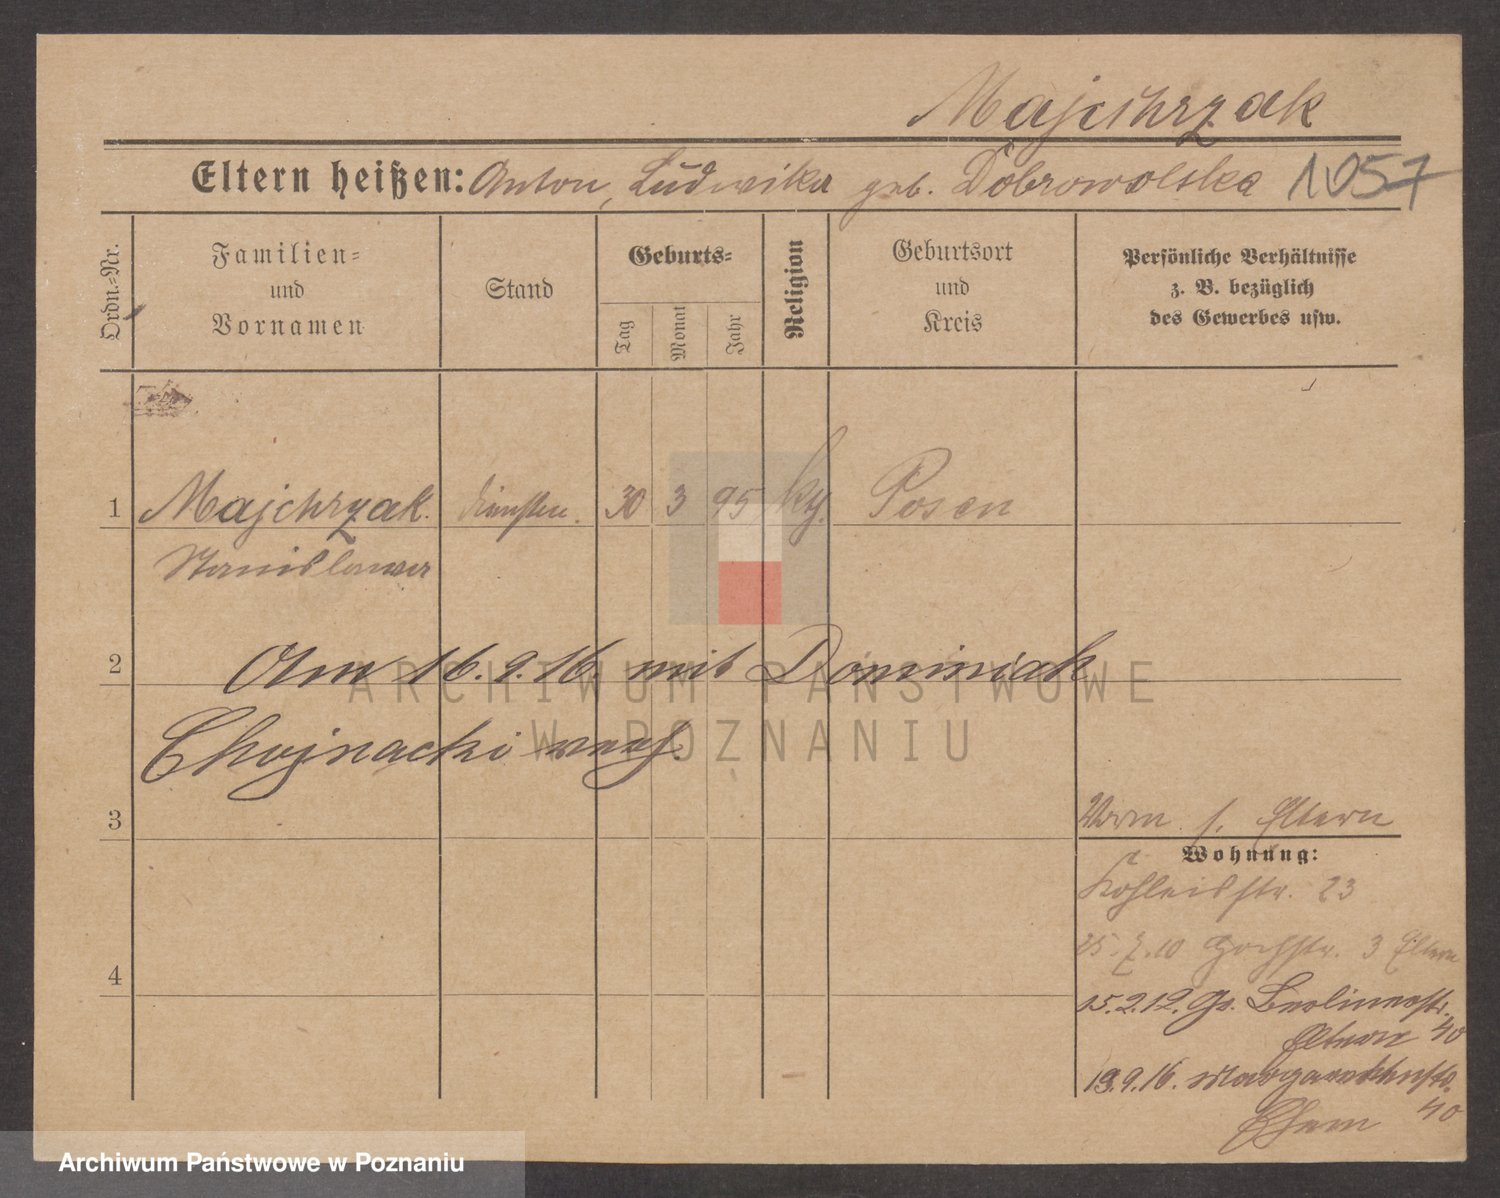 Majchrzak
Eltern heißen: Anton, Ludwika geb. Dobrowolska 1057
Ordn.-Nr.
Familien-
und
Vornamen
Stand
Geburts-
Tag
Monat
Jahr
Religion
Geburtsort
und
Kreis
Persönliche Verhältnisse
z. B. bezüglich
des Gewerbes usw.
1 Majchrzak 30 3 95 Posen
Stanislawa
2 Am 16.9.16. mit Dominiak
Chojnacki verh.
3
4
Eltern
Wohnung:
str. 23
25.7.10 Hochstr. 3 Eltern
15.2.12. Gr. Berlinerstr. 40
Eltern
19.9.16. Margarethenstr. 40
Ehem
ARCHIWUM PAŃSTWOWE
W POZNANIU
Archiwum Państwowe w Poznaniu